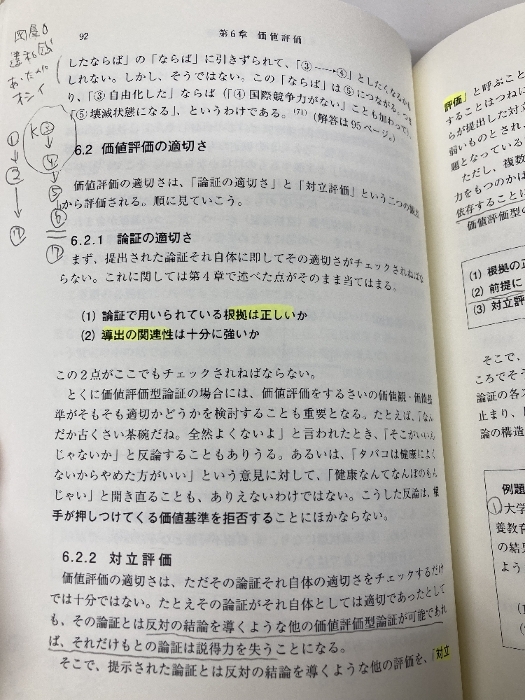 92
第6章 価値評価
したならば」の「ならば」に引きずられて、「③──→④」としたくなるかも
しれない。しかし、そうではない。この「ならば」は⑤につながる。つま
り、「③自由化した」ならば(「④国際競争力がない」ことも加わって)、
「⑤壊滅状態になる」、というわけである。(71)(解答は95ページ。)
6.2 価値評価の適切さ
価値評価の適切さは、「論証の適切さ」と「対立評価」という二つの観点
から評価される。順に見ていこう。
6.2.1 論証の適切さ
まず、提出された論証それ自体に即してその適切さがチェックされねばな
らない。これに関しては第4章で述べた点がそのまま当てはまる。
(1) 論証で用いられている根拠は正しいか
(2) 導出の関連性は十分に強いか
この2点がここでもチェックされねばならない。
とくに価値評価型論証の場合には、価値評価をするさいの価値観・価値基
準がそもそも適切かどうかを検討することも重要となる。たとえば、「なん
だか古くさい茶碗だね。全然よくないよ」と言われたとき、「そこがいいん
じゃないか」と反論することもありうる。あるいは、「タバコは健康によく
ないからやめた方がいい」という意見に対して、「健康なんてなんぼのもん
じゃい」と開き直ることも、ありえないわけではない。こうした反論は、相
手が押しつけてくる価値基準を拒否することにほかならない。
6.2.2 対立評価
価値評価の適切さは、ただその論証それ自体の適切さをチェックするだけ
では十分ではない。たとえその論証がそれ自体としては適切であったとして
も、その論証とは反対の結論を導くような他の価値評価型論証が可能であれ
ば、それだけもとの論証は説得力を失うことになる。
そこで、提示された論証とは反対の結論を導くような他の評価を、「対立
評価」と呼ぶこと
することはつねに
らが提出した対立
弱いものとされ、
題となっている
ただし、複数
力をもつのかは
依存することに
価値評価型の
(1) 根拠の正
(2) 前提に
(3) 対立評
そこで、
ころでそ
論証の各
止まり、
論の構造
例題
①大学
養教育
の結
よう